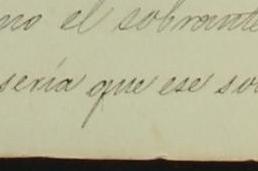 no el sobrante
sería que ese so